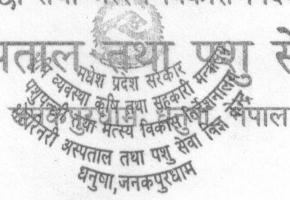 पताल तथा पशु से
मधेश प्रदेश सरकार
व्यवस्था कृषि तथा सहकारी मन्त्रालय
पशुपन्छी तथा मत्स्य विकास निर्देशनालय
भेटेरिनरी अस्पताल तथा पशु सेवा विज्ञ केन्द्र
धनुषा,जनकपुरधाम
नेपाल